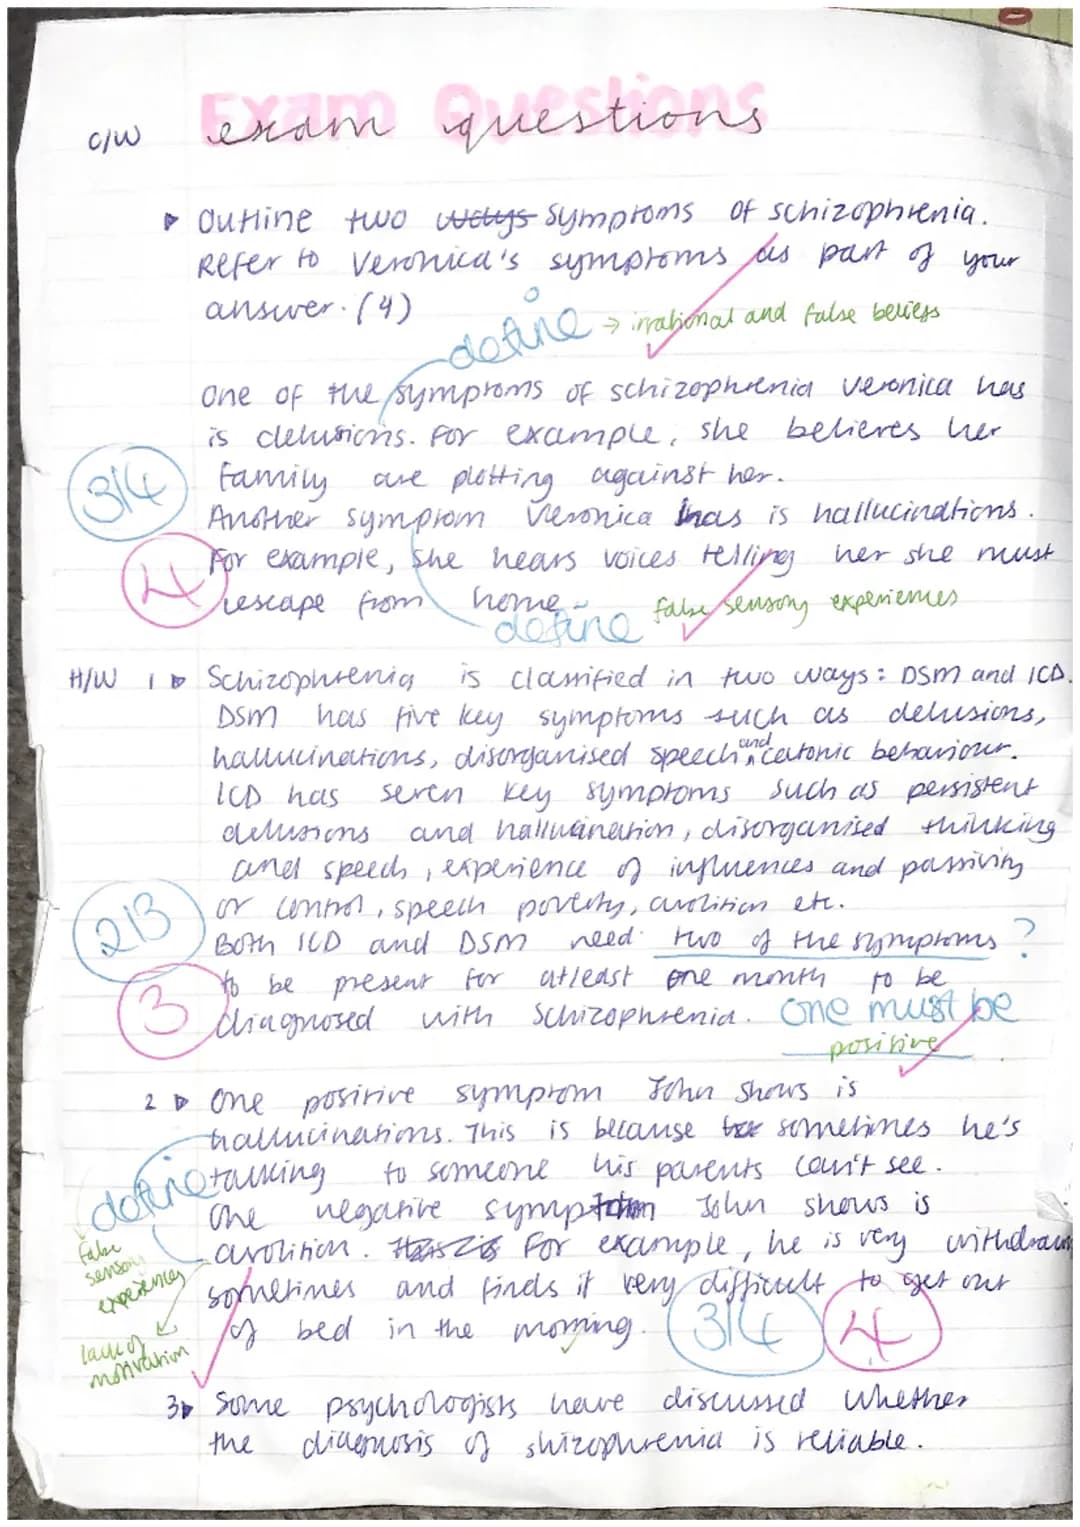 Exam Questions
c/w exam questions
Outline two ways symptoms of schizophrenia.
Refer to Veronica's symptoms as part of your
answer. (4)
define → irrational and false beliefs
One of the symptoms of schizophrenia veronica has
is delusions. For example, she believes her
family are plotting against her.
3/4
Another symptom Veronica has is hallucinations.
For example, she hears voices telling her she must
4
escape from home
define false sensory experiences
H/W 1 Schizophrenia is classified in two ways: DSM and ICD.
DSM has five key symptoms such as delusions,
hallucinations, disorganised speech and catonic behaviour.
ICD has seven key symptoms such as persistent
delusions and hallucination, disorganised thinking
and speech, experience of influences and passivity
or control, speech poverty, avolition etc.
2/3
Both ICD and DSM need two of the symptoms ?
to be present for atleast one month to be
3
diagnosed with schizophrenia. one must be
positive
2 One positive symptom John shows is
hallucinations. This is because sometimes he's
talking to someone his parents can't see.
define
One negative symptom John shows is
avolition. For example, he is very withdrawn
false
sensory
experiences
sometimes and finds it very difficult to get out
of bed in the morning. 3/4 4
lack of
motivation
3 Some psychologists have discussed whether
the diagnosis of shizophrenia is reliable.